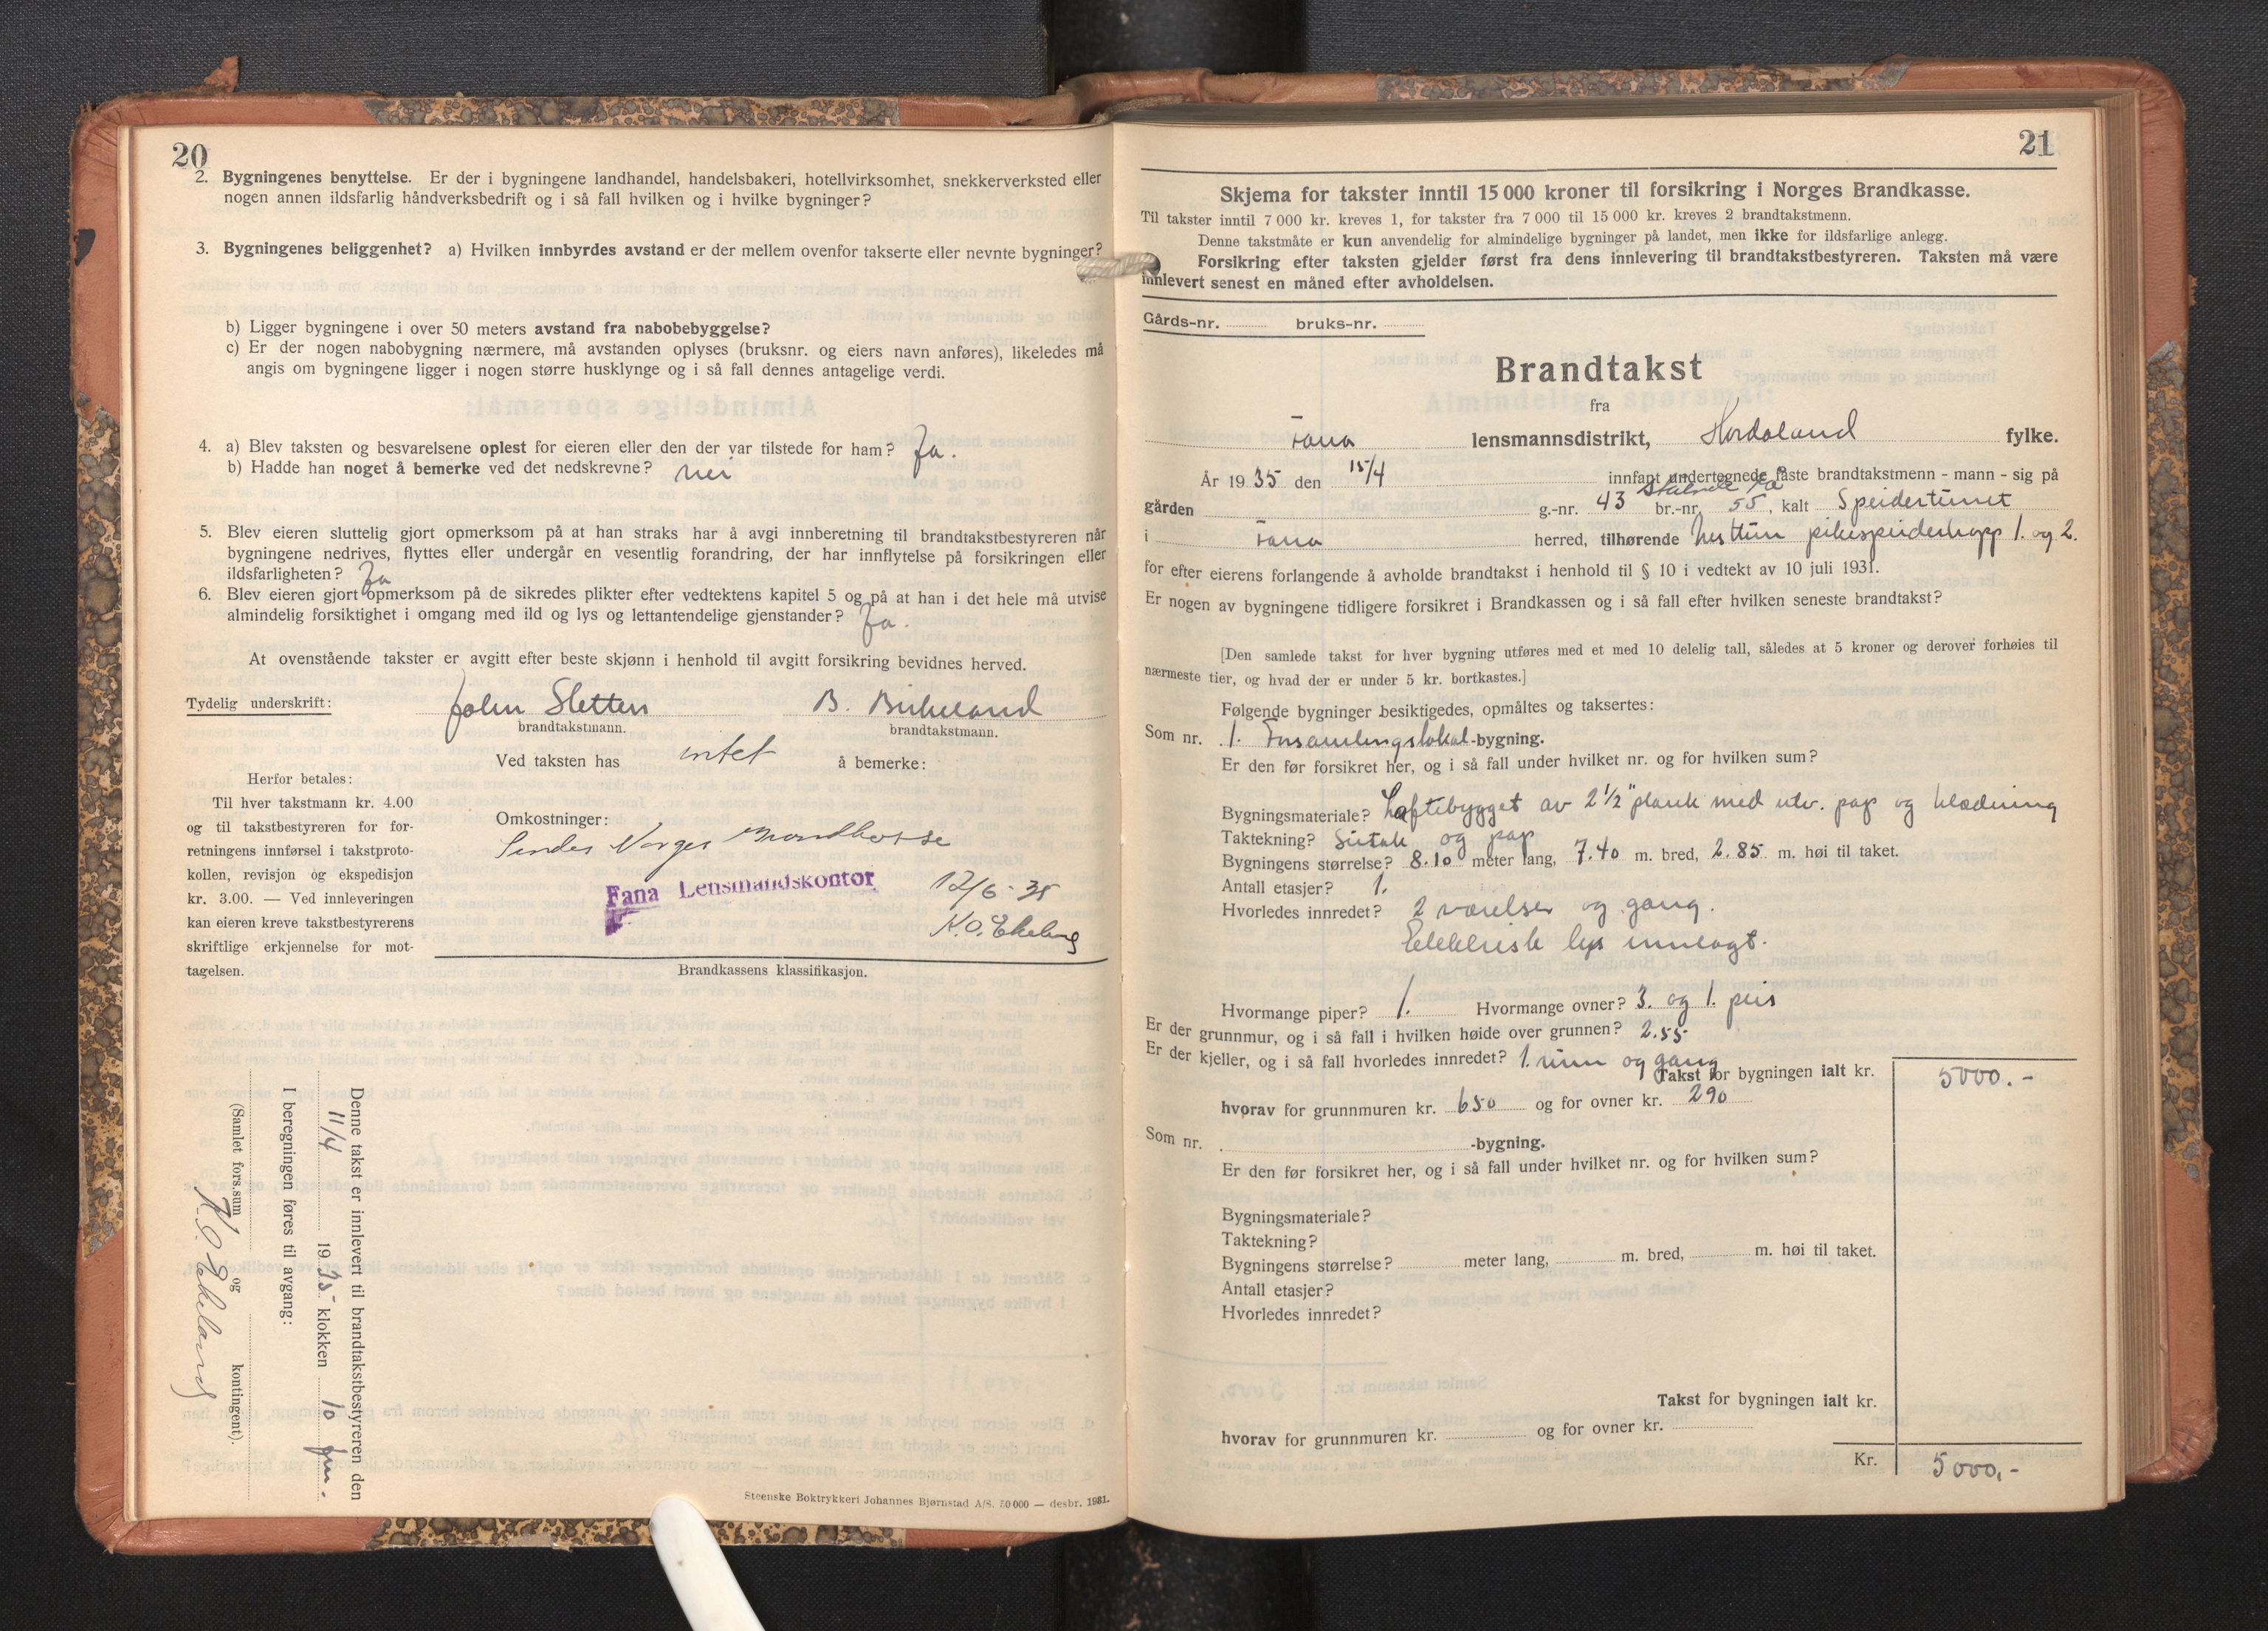 20
2. Bygningenes benyttelse. Er der i bygningene landhandel, handelsbakeri, hotellvirksomhet, snekkerverksted eller
nogen annen ildsfarlig håndverksbedrift og i så fall hvilken og i hvilke bygninger?
3. Bygningenes beliggenhet? a) Hvilken innbyrdes avstand er der mellem ovenfor takserte eller nevnte bygninger?
b) Ligger bygningene i over 50 meters avstand fra nabobebyggelse?
c) Er der nogen nabobygning nærmere, må avstanden oplyses (bruksnr. og eiers navn anføres), likeledes må
angis om bygningene ligger i nogen større husklynge og i så fall dennes antagelige verdi.
4. a) Blev taksten og besvarelsene oplest for eieren eller den der var tilstede for ham? Ja.
b) Hadde han noget å bemerke ved det nedskrevne? nei
5. Blev eieren sluttelig gjort opmerksom på at han straks har å avgi innberetning til brandtakstbestyreren når
bygningene nedrives, flyttes eller undergår en vesentlig forandring, der har innflytelse på forsikringen eller
ildsfarligheten? Ja
6. Blev eieren gjort opmerksom på de sikredes plikter efter vedtektens kapitel 5 og på at han i det hele må utvise
almindelig forsiktighet i omgang med ild og lys og lettantendelige gjenstander? Ja.
At ovenstående takster er avgitt efter beste skjønn i henhold til avgitt forsikring bevidnes herved.
Tydelig underskrift: John Sletten B. Birkeland
brandtakstmann. brandtakstmann.
Ved taksten has intet å bemerke:
Herfor betales:
Til hver takstmann kr. 4.00
og til takstbestyreren for for-
retningens innførsel i takstproto-
kollen, revisjon og ekspedisjon
kr. 3.00. — Ved innleveringen
kan eieren kreve takstbestyrerens
skriftlige erkjennelse for mot-
tagelsen.
Omkostninger:
Sendes Norges Brandkasse
Fana Lensmandskontor 12/6-35
K.O. Ekeland
Brandkassens klassifikasjon.
Denne takst er innlevert til brandtakstbestyreren den
11/4 1935 klokken 10 fm.
I beregningen føres til avgang:
(Samlet fors.sum og kontingent).
K.O. Ekeland
Steenske Boktrykkeri Johannes Bjørnstad A/S. 50 000 — desbr. 1931.
21
Skjema for takster inntil 15 000 kroner til forsikring i Norges Brandkasse.
Til takster inntil 7 000 kr. kreves 1, for takster fra 7 000 til 15 000 kr. kreves 2 brandtakstmenn.
Denne takstmåte er kun anvendelig for almindelige bygninger på landet, men ikke for ildsfarlige anlegg.
Forsikring efter taksten gjelder først fra dens innlevering til brandtakstbestyreren. Taksten må være
innlevert senest en måned efter avholdelsen.
Gårds-nr. bruks-nr.
Brandtakst
fra
Fana lensmannsdistrikt, Hordaland fylke.
År 1935 den 15/4 innfant undertegnede faste brandtakstmenn - mann - sig på
gården g.-nr. 43 br.-nr. 55, kalt Speidertunet
i Fana herred, tilhørende Nesttun pikespeidertropp 1. og 2.
for efter eierens forlangende å avholde brandtakst i henhold til § 10 i vedtekt av 10 juli 1931.
Er nogen av bygningene tidligere forsikret i Brandkassen og i så fall efter hvilken seneste brandtakst?
[Den samlede takst for hver bygning utføres med et med 10 delelig tall, således at 5 kroner og derover forhøies til
nærmeste tier, og hvad der er under 5 kr. bortkastes.]
Følgende bygninger besiktigedes, opmåltes og taksertes:
Som nr. 1. Forsamlingslokal-bygning.
Er den før forsikret her, og i så fall under hvilket nr. og for hvilken sum?
Bygningsmateriale? Laftebygget av 2 1/2" plank med utv. pap og klædning
Taktekning? Sutak og pap
Bygningens størrelse? 8.10 meter lang, 7.40 m. bred, 2.85 m. høi til taket.
Antall etasjer? 1.
Hvorledes innredet? 2 værelser og gang.
Elektrisk lys innlagt.
Hvormange piper? 1. Hvormange ovner? 3. og 1. peis
Er der grunnmur, og i så fall i hvilken høide over grunnen? 2.55
Er der kjeller, og i så fall hvorledes innredet? 1. rum og gang
Takst for bygningen ialt kr. 5000.-
hvorav for grunnmuren kr. 650 og for ovner kr. 290
Som nr. -bygning.
Er den før forsikret her, og i så fall under hvilket nr. og for hvilken sum?
Bygningsmateriale?
Taktekning?
Bygningens størrelse? meter lang, m. bred, m. høi til taket.
Antall etasjer?
Hvorledes innredet?
Takst for bygningen ialt kr.
hvorav for grunnmuren kr. og for ovner kr.
Kr. 5000,-